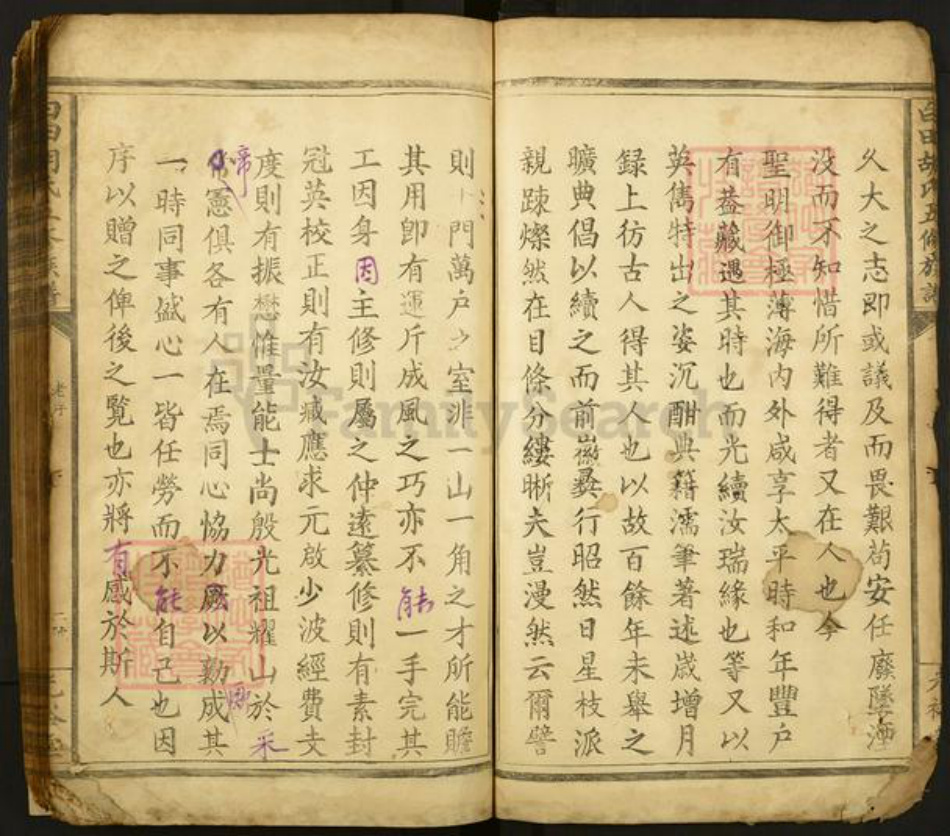 久大之志即或議及而畏艱苟安任廢墜湮
沒而不知惜所難得者又在人也今
聖明御極薄海內外咸享太平時和年豐戶
有葢藏遇其時也而光續汝瑞緣也等又以
英雋特出之姿沉酣典籍濡筆著述歲增月
録上彷古人得其人也以故百餘年未舉之
曠典倡以續之而前徽彝行昭然日星枝派
親踈燦然在目條分縷晰夫豈漫然云爾譬
則 門萬戶之室非一山一角之才所能贍
其用卽有運斤成風之巧亦不能一手完其
工因身因主修則屬之仲遠纂修則有素封
冠英校正則有汝臧應求元啟少波經費支
度則有振懋惟量能士尚殷光祖耀山於采
啼 憲俱各有人在焉同心恊力 以勷成其
一時同事盛心一皆任勞而不能自己也因
序以贈之俾後之覽也亦將有感於斯人
白田胡氏五修族譜
FamilySearch